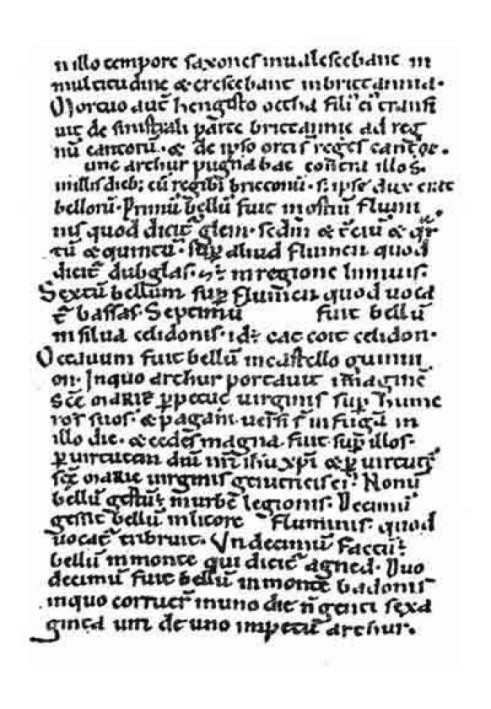 n illo tempore saxones inualescebant in
multitudine & crescebant in brittannia.
Mortuo aut̄ hengisto octha fili' ei' transi
uit de sinistrali parte brittannie ad reg
nū cantorū. & de ipso orti s̄ reges cantoꝝ.
unc arthur pugnabat contra illos.
in illis dieb; cū regib; brittonū. s; ipse dux erat
bellorū. Primū bellū fuit in ostiū flumi
nis quod dicit̄ glein. sc̄dm̄ & t̄ciū & q̄r
tū & quintū. sup̄ aliud flumen quod
dicit̄ dubglas. ⁊ ÷ in regione linnuis.
Sextū bellum sup̄ flumen quod uoca
t̄ bassas. Septimū fuit bellū
in silua celidonis. id ÷ cat coit celidon.
Octauum fuit bellū in castello guinni
on. In quo arthur portauit imaginē
sc̄e marie ꝑpetue uirginis sup̄ hume
ros suos. & pagani uersi s̄ in fugā in
illo die. & cedes magna fuit sup̄ illos.
ꝑ uirtutem dn̄i nr̄i ih̄u xp̄i & ꝑ uirtutē
sc̄e marie uirginis genitricis ei'. Nonū
bellū gestū ÷ in urbe legionis. Decimū
gessit bellū in litore fluminis. quod
uocat̄ tribruit. Vndecimū factū ÷
bellū in monte qui dicit̄ agned. Duo
decimū fuit bellū in monte badonis
in quo corruer̄ in uno die n̄genti sexa
ginta uiri de uno impetu arthur.